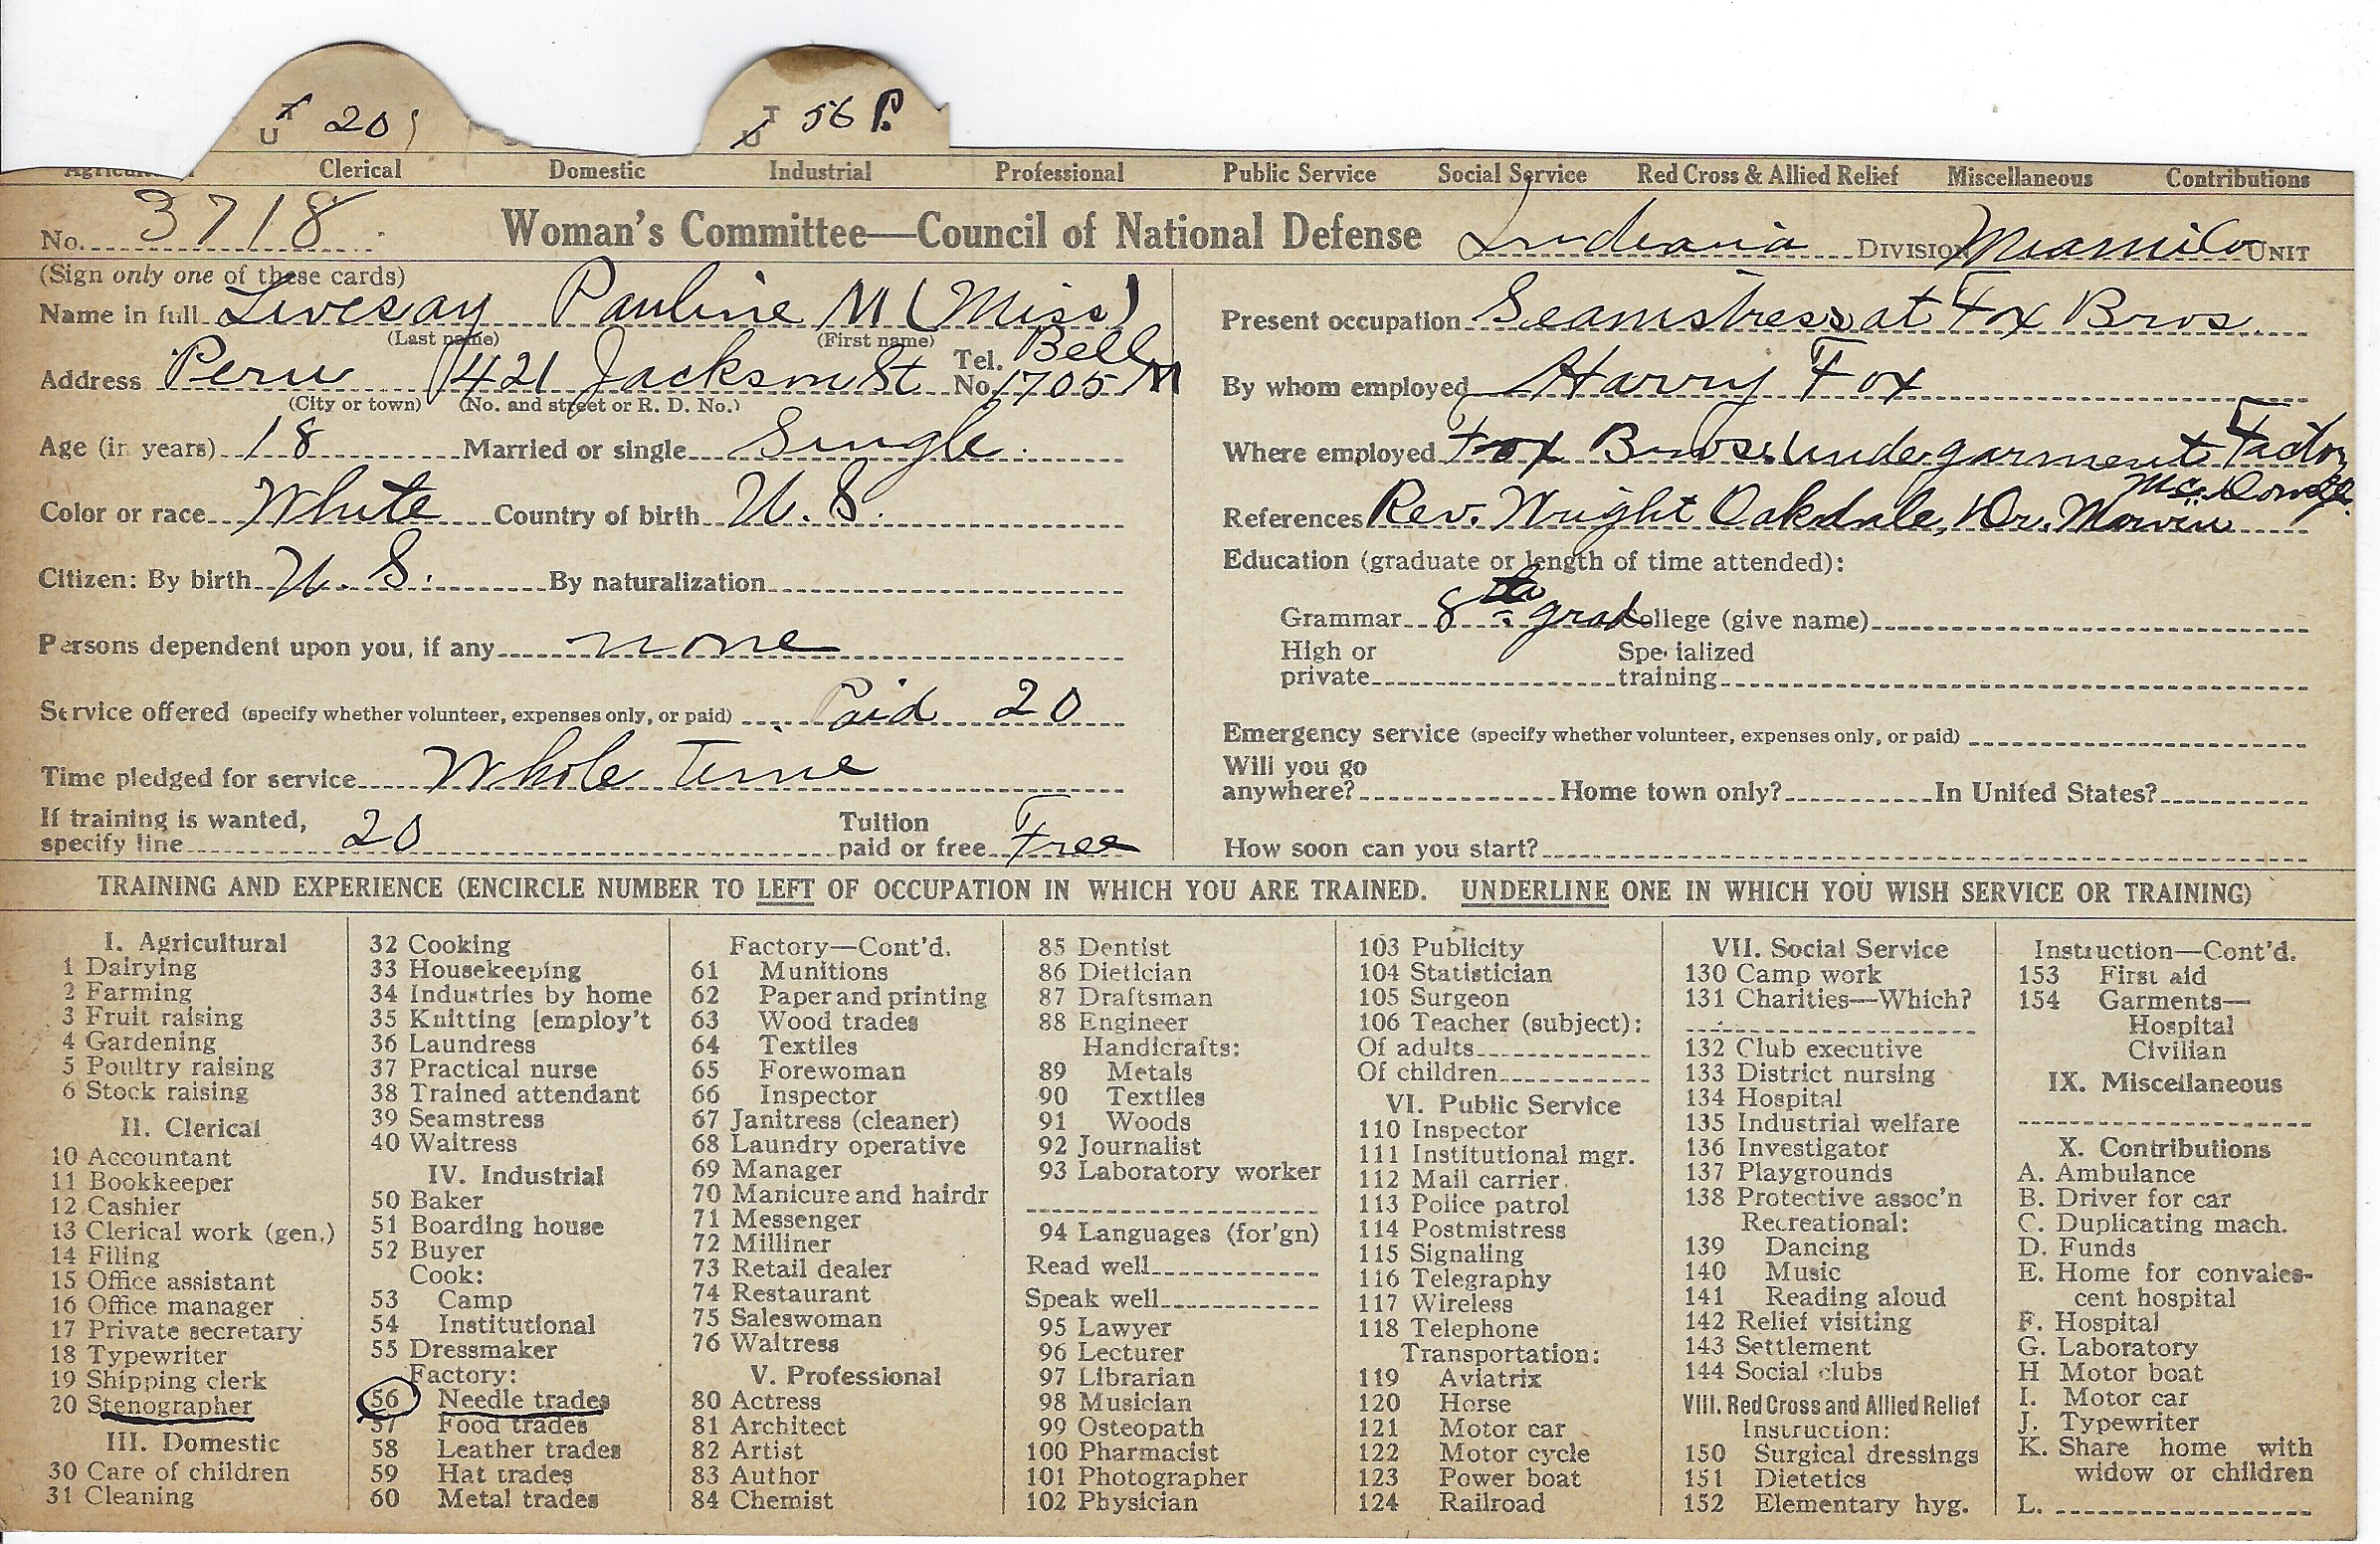 T U 20
T U 56 P.
Agricultural Clerical Domestic Industrial Professional Public Service Social Service Red Cross & Allied Relief Miscellaneous Contributions
No. 3718 Woman's Committee—Council of National Defense Indiana DIVISION Miami Co UNIT
(Sign only one of these cards)
Name in full Livesay Pauline M (Miss)
(Last name) (First name)
Address Peru 1421 Jackson St Tel. No. Bell 1705 M
(City or town) (No. and street or R. D. No.)
Age (in years) 18 Married or single Single
Color or race White Country of birth U. S.
Citizen: By birth U. S. By naturalization
Persons dependent upon you, if any none
Service offered (specify whether volunteer, expenses only, or paid) Paid 20
Time pledged for service Whole Time
If training is wanted, specify line 20 Tuition paid or free Free
Present occupation Seamstress at Fox Bros.
By whom employed Harry Fox
Where employed Fox Bros. Undegarment Factory
References Rev. Wright Oakdale, Dr. McDowell
Education (graduate or length of time attended):
Grammar 8th grad College (give name)
High or private Specialized training
Emergency service (specify whether volunteer, expenses only, or paid)
Will you go anywhere? Home town only? In United States?
How soon can you start?
TRAINING AND EXPERIENCE (ENCIRCLE NUMBER TO LEFT OF OCCUPATION IN WHICH YOU ARE TRAINED. UNDERLINE ONE IN WHICH YOU WISH SERVICE OR TRAINING)
I. Agricultural
1 Dairying
2 Farming
3 Fruit raising
4 Gardening
5 Poultry raising
6 Stock raising
II. Clerical
10 Accountant
11 Bookkeeper
12 Cashier
13 Clerical work (gen.)
14 Filing
15 Office assistant
16 Office manager
17 Private secretary
18 Typewriter
19 Shipping clerk
20 Stenographer
III. Domestic
30 Care of children
31 Cleaning
32 Cooking
33 Housekeeping
34 Industries by home
35 Knitting [employ't
36 Laundress
37 Practical nurse
38 Trained attendant
39 Seamstress
40 Waitress
IV. Industrial
50 Baker
51 Boarding house
52 Buyer
Cook:
53 Camp
54 Institutional
55 Dressmaker
Factory:
56 Needle trades
57 Food trades
58 Leather trades
59 Hat trades
60 Metal trades
Factory—Cont'd.
61 Munitions
62 Paper and printing
63 Wood trades
64 Textiles
65 Forewoman
66 Inspector
67 Janitress (cleaner)
68 Laundry operative
69 Manager
70 Manicure and hairdr
71 Messenger
72 Milliner
73 Retail dealer
74 Restaurant
75 Saleswoman
76 Waitress
V. Professional
80 Actress
81 Architect
82 Artist
83 Author
84 Chemist
85 Dentist
86 Dietician
87 Draftsman
88 Engineer
Handicrafts:
89 Metals
90 Textiles
91 Woods
92 Journalist
93 Laboratory worker
94 Languages (for'gn)
Read well
Speak well
95 Lawyer
96 Lecturer
97 Librarian
98 Musician
99 Osteopath
100 Pharmacist
101 Photographer
102 Physician
103 Publicity
104 Statistician
105 Surgeon
106 Teacher (subject):
Of adults
Of children
VI. Public Service
110 Inspector
111 Institutional mgr.
112 Mail carrier
113 Police patrol
114 Postmistress
115 Signaling
116 Telegraphy
117 Wireless
118 Telephone
Transportation:
119 Aviatrix
120 Horse
121 Motor car
122 Motor cycle
123 Power boat
124 Railroad
VII. Social Service
130 Camp work
131 Charities—Which?
132 Club executive
133 District nursing
134 Hospital
135 Industrial welfare
136 Investigator
137 Playgrounds
138 Protective assoc'n
Recreational:
139 Dancing
140 Music
141 Reading aloud
142 Relief visiting
143 Settlement
144 Social clubs
VIII. Red Cross and Allied Relief
Instruction:
150 Surgical dressings
151 Dietetics
152 Elementary hyg.
Instruction—Cont'd.
153 First aid
154 Garments—
Hospital
Civilian
IX. Miscellaneous
X. Contributions
A. Ambulance
B. Driver for car
C. Duplicating mach.
D. Funds
E. Home for convales-
cent hospital
F. Hospital
G. Laboratory
H Motor boat
I. Motor car
J. Typewriter
K. Share home with
widow or children
L.